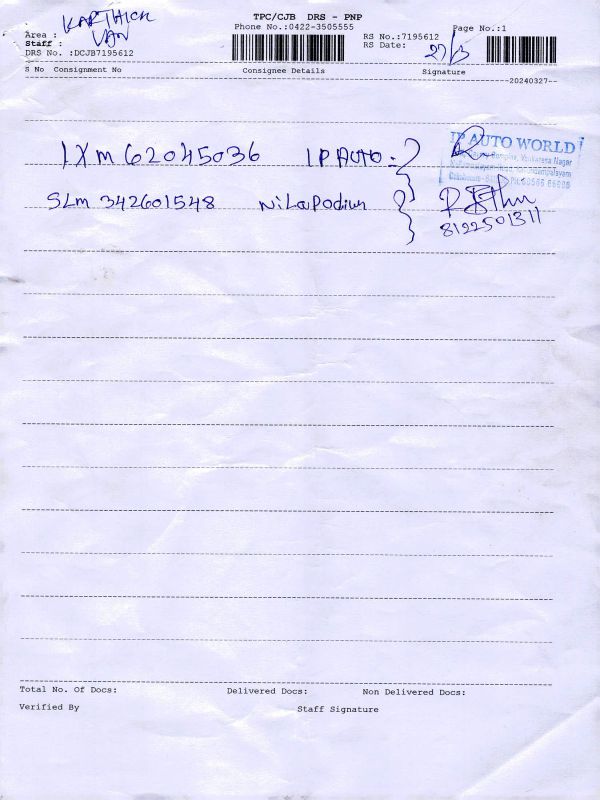 KARTHICK
VAN
TPC/CJB DRS - PNP
Phone No.:0422-3505555
Page No.:1
Area :
Staff :
DRS No. :DCJB7195612
RS No.:7195612
RS Date: 27/3
S No Consignment No Consignee Details Signature
20240327
IXM 62045036 IP AUTO
IP AUTO WORLD
SLM 342601548 Nila Podium
8122501311
Total No. Of Docs: Delivered Docs: Non Delivered Docs:
Verified By Staff Signature